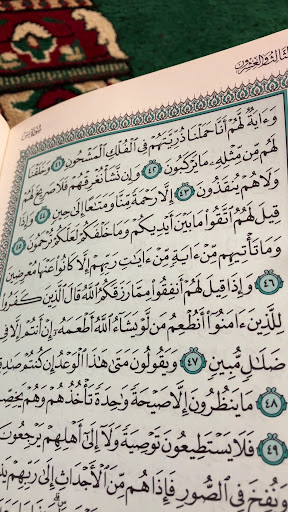 الثالث والعشرون
وَءَايَةٌ لَّهُمْ أَنَّا حَمَلْنَا ذُرِّيَّتَهُمْ فِي ٱلْفُلْكِ ٱلْمَشْحُونِ ٤١ وَخَلَقْنَا
لَهُم مِّن مِّثْلِهِۦ مَا يَرْكَبُونَ ٤٢ وَإِن نَّشَأْ نُغْرِقْهُمْ فَلَا صَرِيخَ لَهُمْ
وَلَا هُمْ يُنقَذُونَ ٤٣ إِلَّا رَحْمَةً مِّنَّا وَمَتَٰعًا إِلَىٰ حِينٍ ٤٤ وَإِذَا
قِيلَ لَهُمُ ٱتَّقُوا۟ مَا بَيْنَ أَيْدِيكُمْ وَمَا خَلْفَكُمْ لَعَلَّكُمْ تُرْحَمُونَ ٤٥
وَمَا تَأْتِيهِم مِّنْ ءَايَةٍ مِّنْ ءَايَٰتِ رَبِّهِمْ إِلَّا كَانُوا۟ عَنْهَا مُعْرِضِينَ
٤٦ وَإِذَا قِيلَ لَهُمْ أَنفِقُوا۟ مِمَّا رَزَقَكُمُ ٱللَّهُ قَالَ ٱلَّذِينَ كَفَرُوا۟
لِلَّذِينَ ءَامَنُوٓا۟ أَنُطْعِمُ مَن لَّوْ يَشَآءُ ٱللَّهُ أَطْعَمَهُۥٓ إِنْ أَنتُمْ إِلَّا فِي
ضَلَٰلٍ مُّبِينٍ ٤٧ وَيَقُولُونَ مَتَىٰ هَٰذَا ٱلْوَعْدُ إِن كُنتُمْ صَٰدِقِينَ
٤٨ مَا يَنظُرُونَ إِلَّا صَيْحَةً وَٰحِدَةً تَأْخُذُهُمْ وَهُمْ يَخِصِّمُونَ
٤٩ فَلَا يَسْتَطِيعُونَ تَوْصِيَةً وَلَآ إِلَىٰٓ أَهْلِهِمْ يَرْجِعُونَ
وَنُفِخَ فِي ٱلصُّورِ فَإِذَا هُم مِّنَ ٱلْأَجْدَاثِ إِلَىٰ رَبِّهِمْ